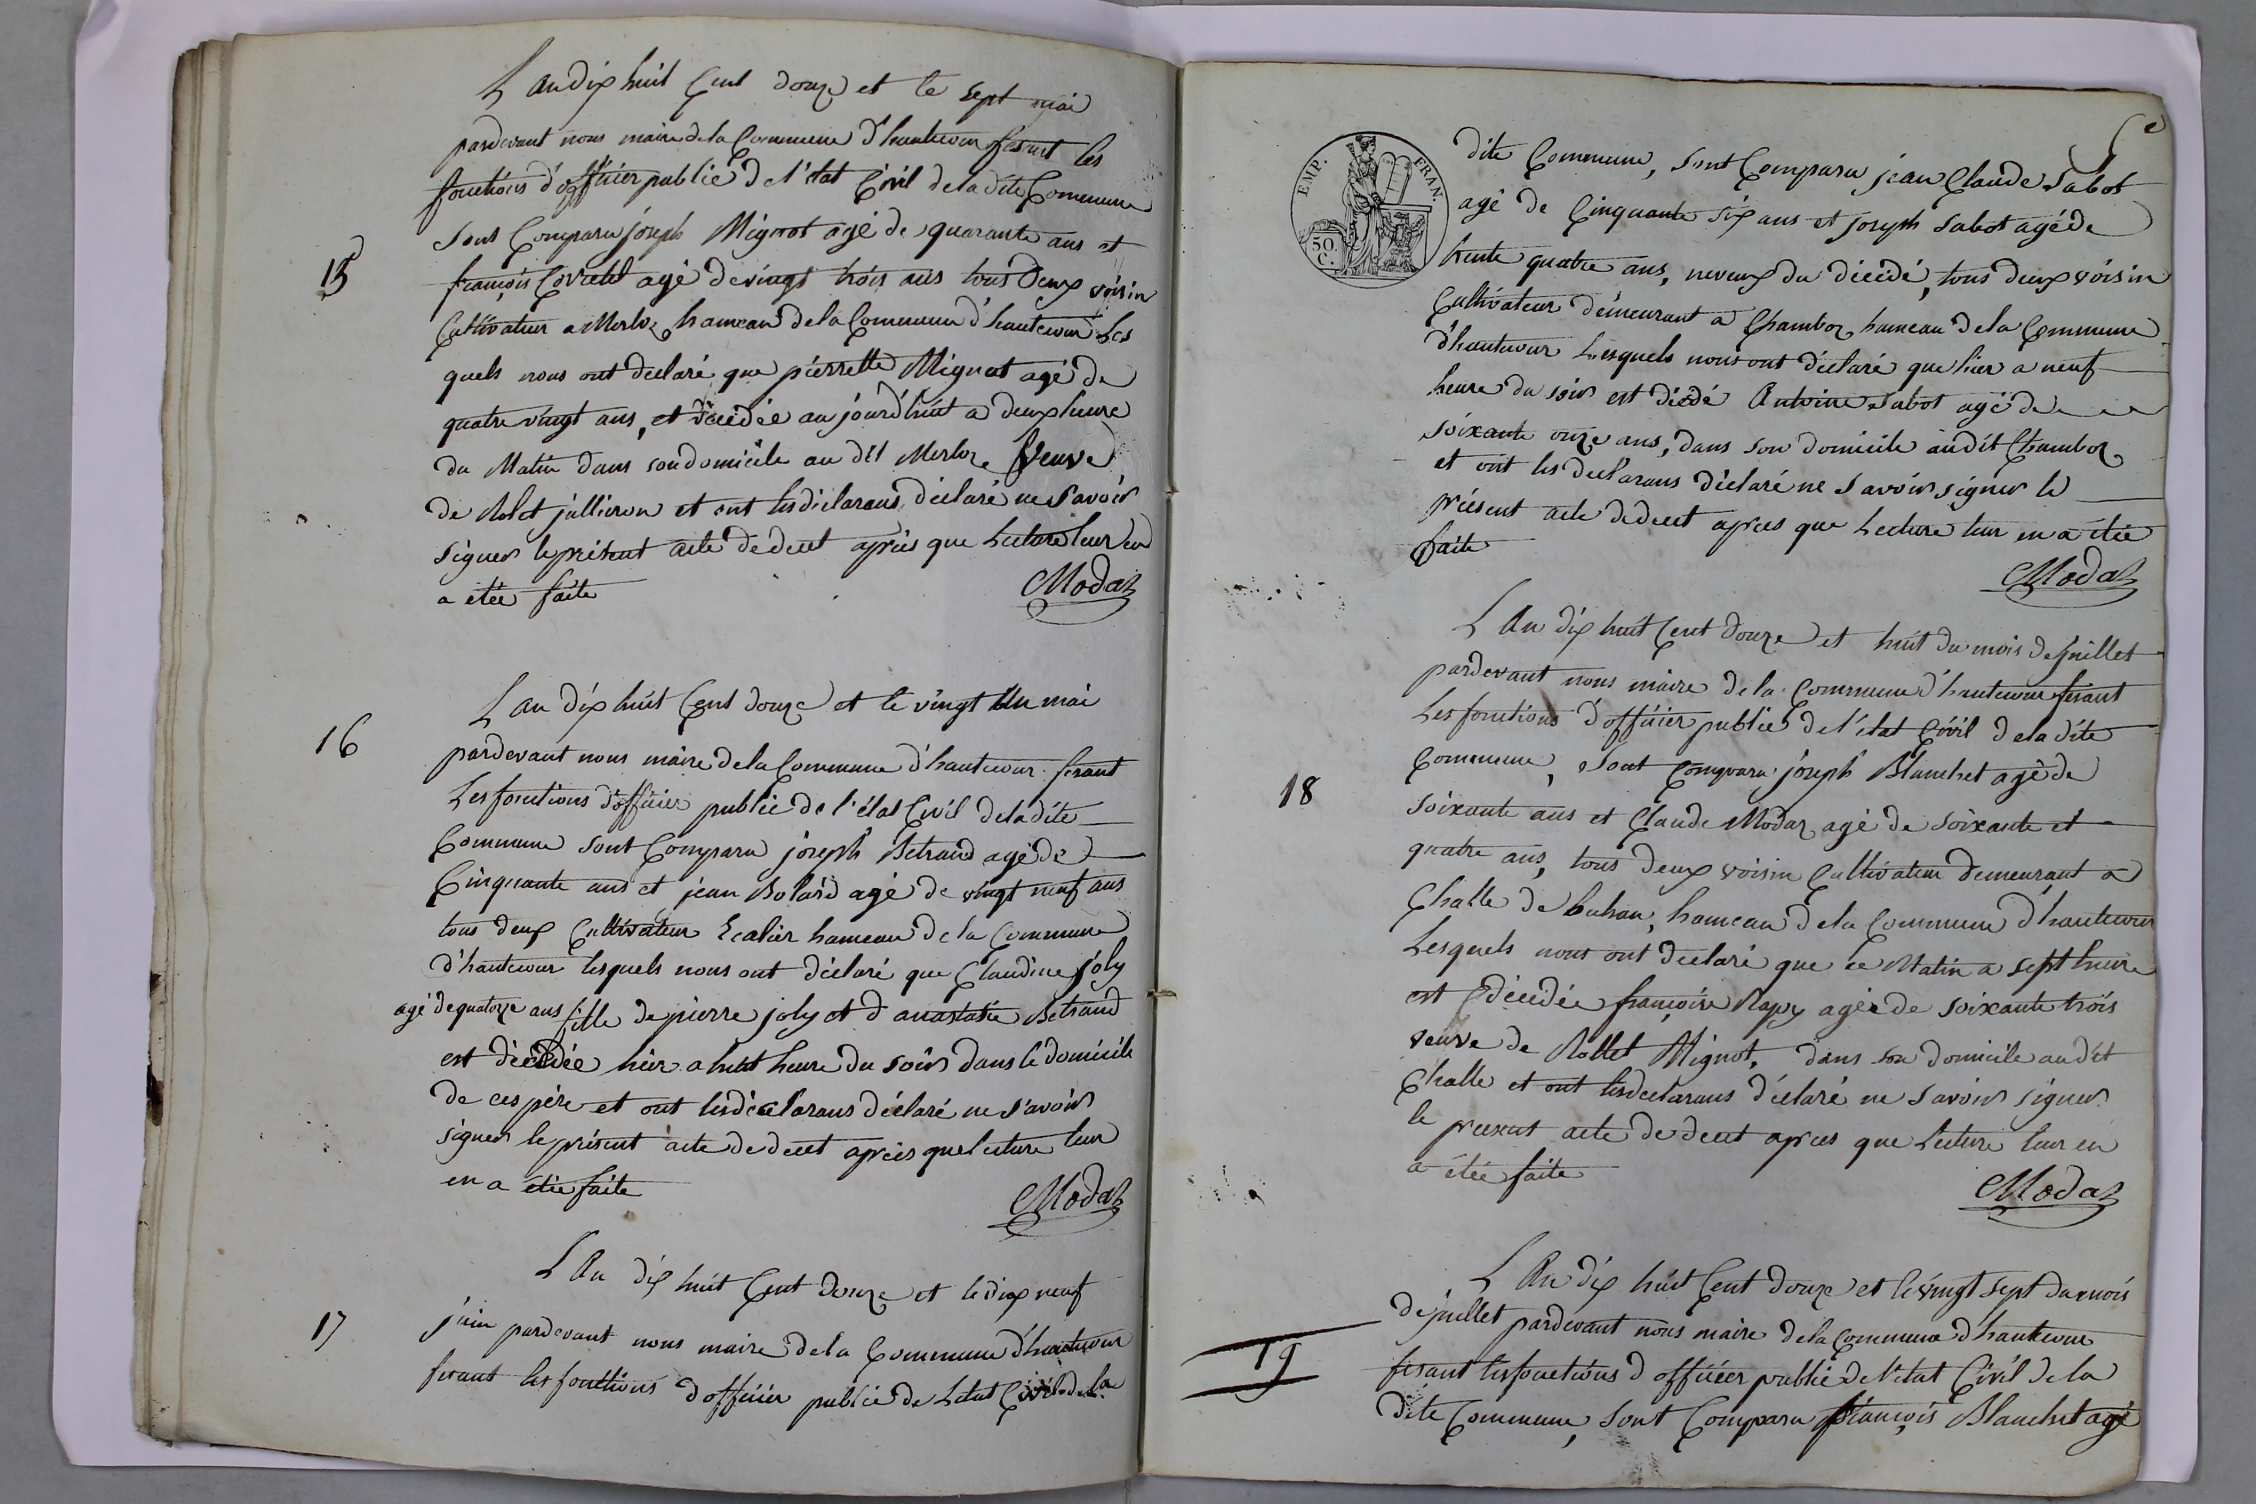 L an dix huit Cent douze et le sept mai
pardevant nous maire de la Commune d'hautecour fesant les
fonctions d'officier public de l'etat Civil de la dite Commune
15
sont Comparu joseph Mignot agé de quarante ans et
françois agé de vingt trois ans tous deux voisin
Cultivateur a Merloz hameau de la Commune d'hautecour Les
quels nous ont declaré que pierrette Mignot agé de
quatre vingt ans, et décidée au jourd'huit a deux heure
du Matin dans son domicile au dit Merloz Veuve
de Rolet jullieron et ont les déclarans déclaré ne savoir
signer le présent acte de decet après que Lecture leur en
a étée faite
Modaz
L an dix huit Cent douze et le vingt Un mai
16
pardevant nous maire de la Commune d'hautecour fesant
Les fonctions d'officier public de l'état Civil de la dite
Commune sont Comparu joseph Betrand agé de
Cinquante ans et jean Bolard agé de vingt neuf ans
tous deux Cultivateur hameau de la Commune
d'hautecour lesquels nous ont déclaré que Claudine joly
agé de quatorze ans fille de pierre joly et d anastasie Betrand
est décédée hier a huit heure du soir dans le domicile
de ces père et ont les déclarans déclaré ne s'avoir
signer le présent acte de decet après que lecture leur
en a étée faite
Modaz
L An dix huit Cent douze et le dix neuf
17
juin pardevant nous maire de la Commune d'hautecour
fesant les fonctions d officier public de Letat Civil de la
dite Commune, sont Comparu jean Claude Sabot
agé de Cinquante six ans et joseph Sabot agé de
EMP. FRAN.
50 C.
trente quatre ans, neveux du décidé, tous deux voisin
Cultivateur demeurant a Chamboz hameau de la Commune
d'hautecour Lesquels nous ont déclaré que hier a neuf
heure du soir est décédé Antoine Sabot agé de
soixante onze ans, dans son domicile au dit Chamboz
et ont les declarans déclaré ne savoir signer le
présent acte de decet apres que Lecture leur en a étée
faite
Modaz
L An dix huit Cent douze et huit du mois de juillet
pardevant nous maire de la Commune d'hautecour fesant
Les fonctions d'officier public de l'état Civil de la dite
Commune, sont Comparu joseph Blanchet agé de
18
soixante ans et Claude Modaz agé de soixante et
quatre ans, tous deux voisin Cultivateur demeurant a
Challe de bohan, hameau de la Commune d'hautecour
Lesquels nous ont declaré que ce Matin a sept heure
est décidée françoise Rapy agée de soixante trois
veuve de Rollet Mignot, dans son domicile au dit
Challe et ont les declarans déclaré ne savoir signer
le present acte de decet apres que Lecture leur en
a étée faite
Modaz
L An dix huit Cent douze et le vingt sept du mois
de juillet pardevant nous maire de la Commune d'hautecour
19
fesant les fonctions d officier public de l'etat Civil de la
dite Commune, sont Comparu françois Blanchet agé